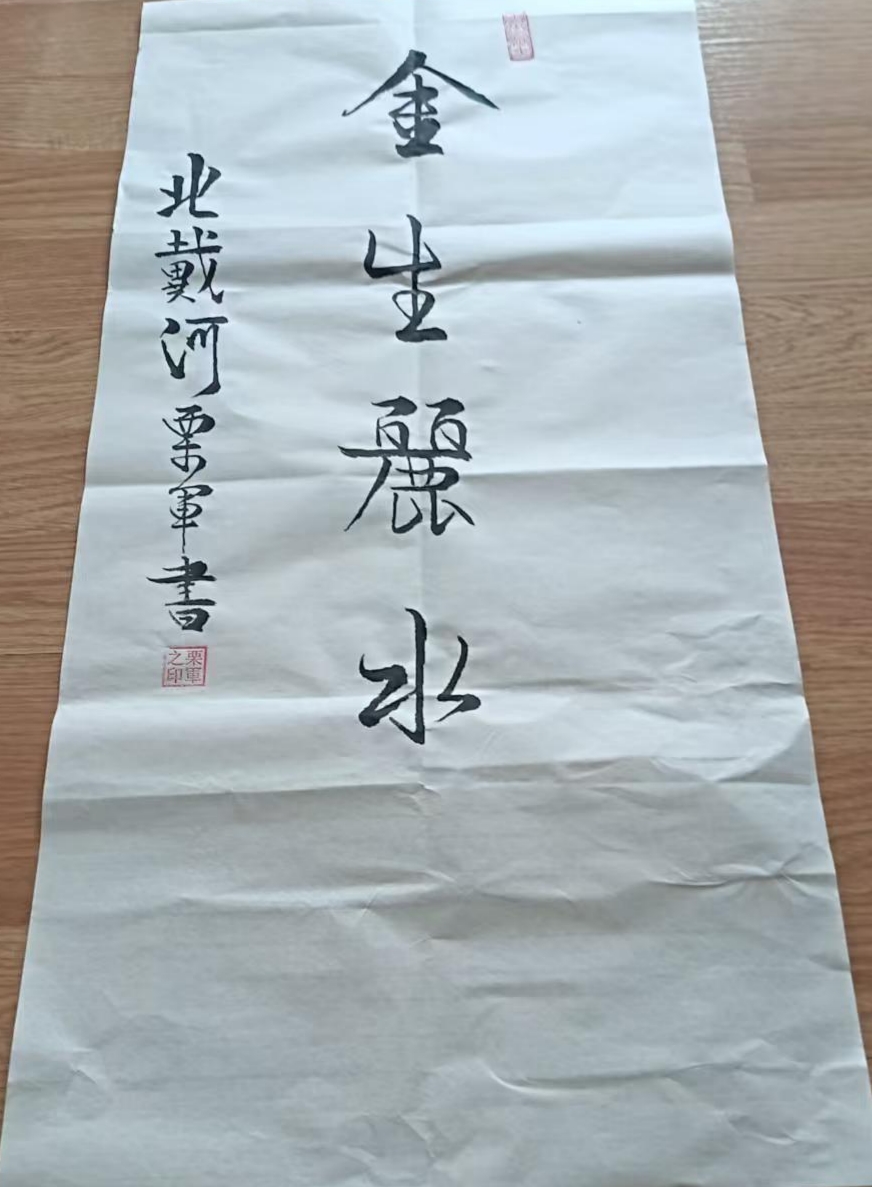 金生麗水
北戴河栗軍書
栗軍之印